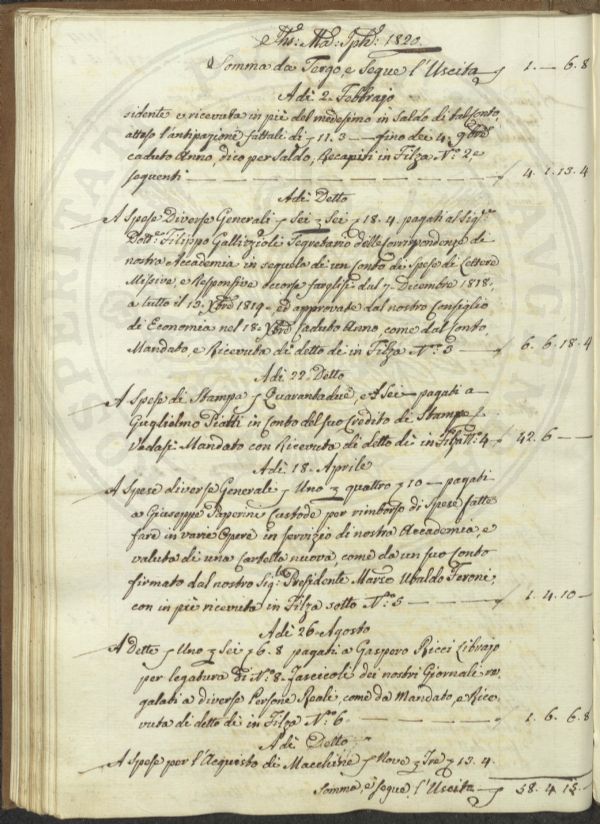 Ths: Ma: Jph: 1820.
Somma da Tergo, e Segue l'Uscita 1. — 6. 8
Adi 2. Febbrajo
sidente e ricevuta in piè del medesimo in Saldo di tal Conto,
atteso l'antipazioni fattali di 11. 3 — fino dei 4. 9bre
caduto Anno, dico per Saldo, Recapiti in Filza N.o 2, e
seguenti — 4. 1. 13. 4
Adi Detto
A Spese Diverse Generali Sei Sei 18. 4. pagati al Sig.re
Dott.re Filippo Gallizioli Segretario delle Corrispondenze di
nostra Accademia in sequela di un Conto di Spese di Lettere
Missive, e Responsive occorse farglisi dal 7. Decembre 1818.,
a tutto il 13. Xbre 1819. ed approvate dal nostro Consiglio
di Economia nel 18. Xbre Caduto Anno, come dal Conto,
Mandato, e Ricevuta di detto dì in Filza N.o 3 — 6. 6. 18. 4
Adi 22. Detto
A Spese di Stampa Quarantadue, e Sei — pagati a
Guglielmo Piatti in Conto del suo Credito di Stampe
Vedasi Mandato con Ricevuta di detto dì in Filza N.o 4 42. 6 — —
Adi 18. Aprile
A Spese diverse Generali Uno quattro 10 — pagati
a Giuseppe Paperini Custode per rimborso di Spese fatte
fare in varie Opere in Servizio di nostra Accademia, e
valuta di una Cartella nuova come da un suo Conto
firmato dal nostro Sig.re Presidente Marco Ubaldo Feroni,
con in piè ricevuta in Filza sotto N.o 5 — 1. 4. 10 —
Adi 26. Agosto
A Dette Uno Sei 6. 8 pagati a Gaspero Ricci Librajo
per legatura di N.o 8. Fascicoli dei nostri Giornali re
galati a diverse Persone Reali, come da Mandato, e Rice
vuta di detto dì in Filza N.o 6 — 1. 6. 6. 8
Adi Detto
A Spese per l'Acquisto di Macchine Nove Tre 13. 4.
Somma, e segue l'Uscita 58. 4. 15 —